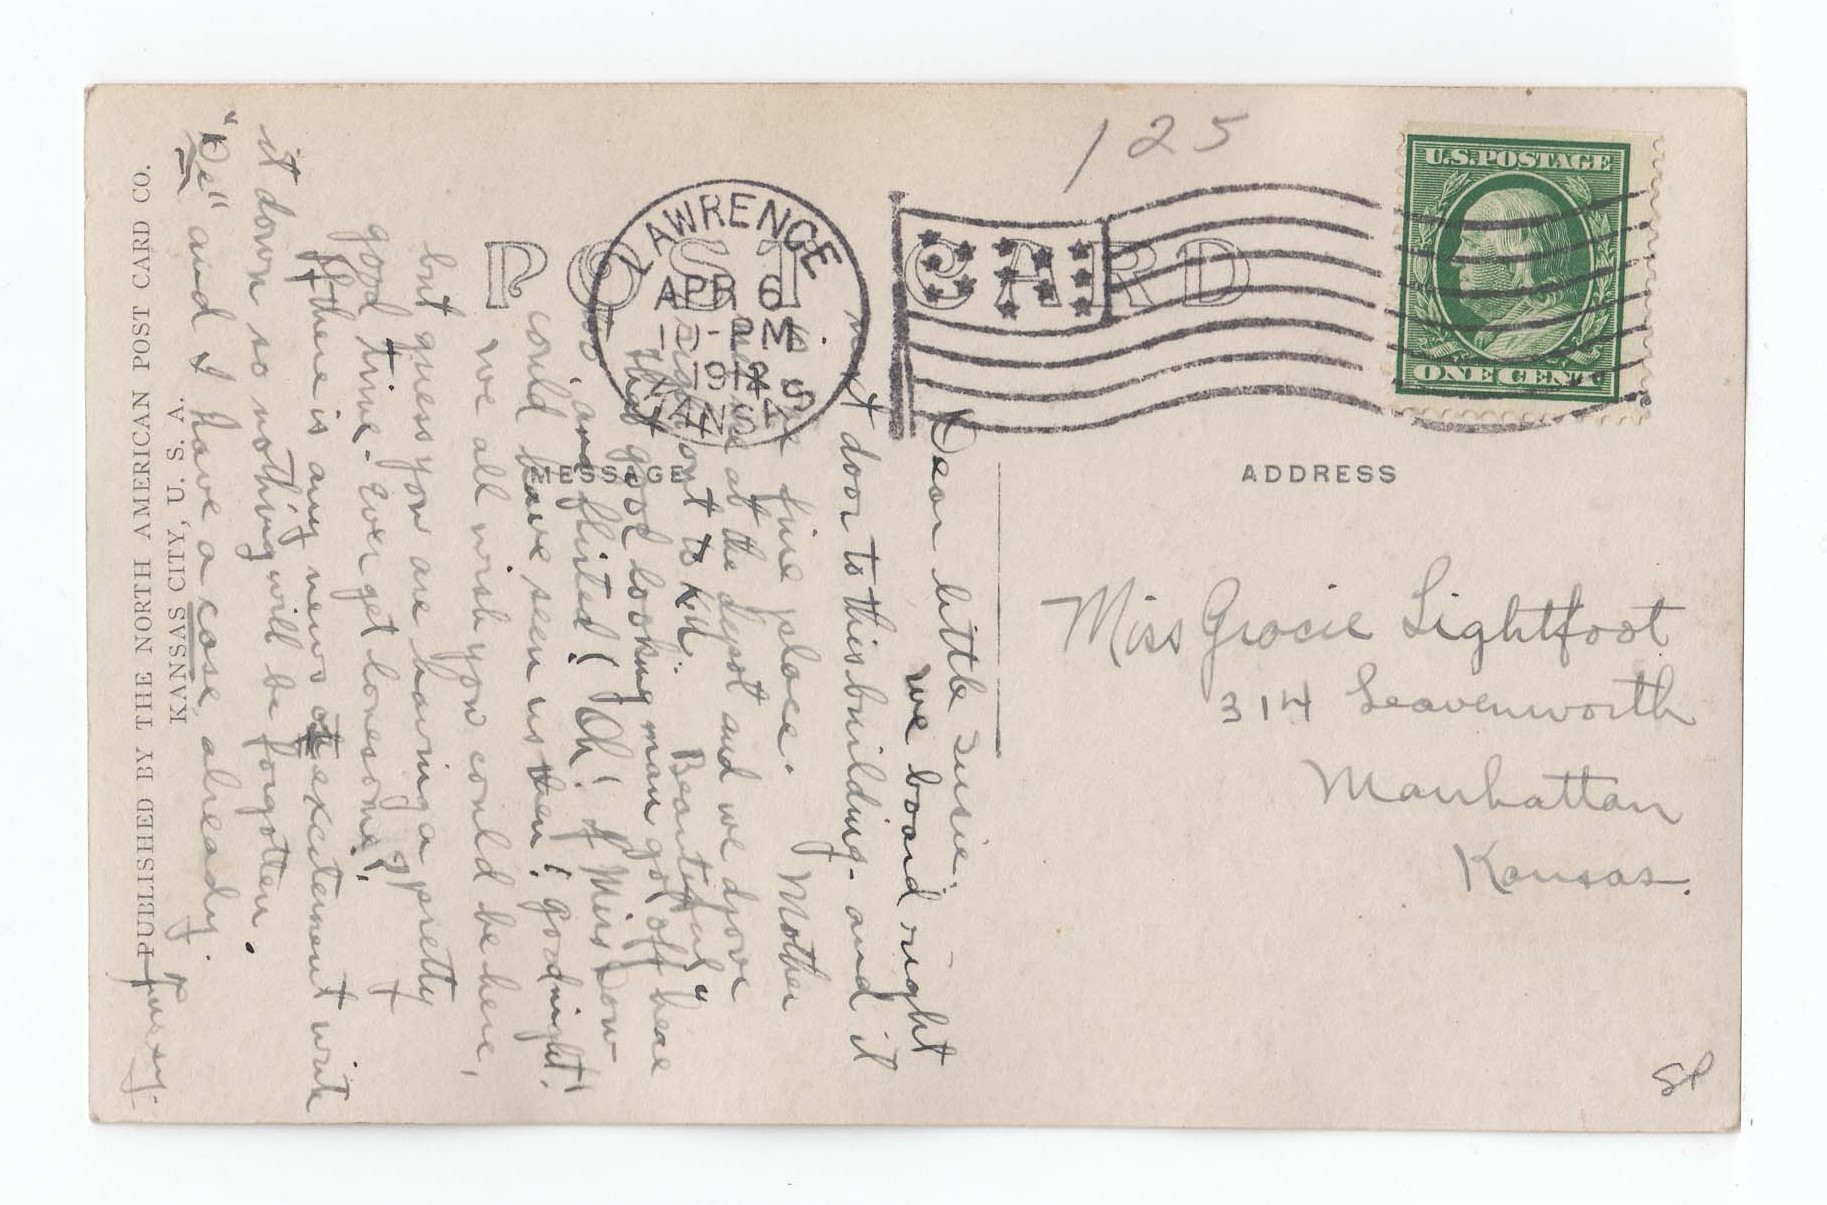 PUBLISHED BY THE NORTH AMERICAN POST CARD CO.
KANSAS CITY, U. S. A.
POST CARD
LAWRENCE
APR 6
PM
191
KANS
125
U.S.POSTAGE
ONE CENT
MESSAGE
ADDRESS
Miss Gracie Lightfoot
314 Leavenworth
Manhattan
Kansas.
Dear little Susie,
we board right
next door to this building- and it
fine place. Mother
at the depot and we drove
out to K.U. Beautiful"
that good looking man got off here
and flirted! Oh! if Miss Dow
could have seen us then! goodnight!
we all wish you could be here,
but guess you are having a pretty
good time. Ever get lonesome?
If there is any news or excitement write
it down so nothing will be forgotten.
"De" and I have a case, already.